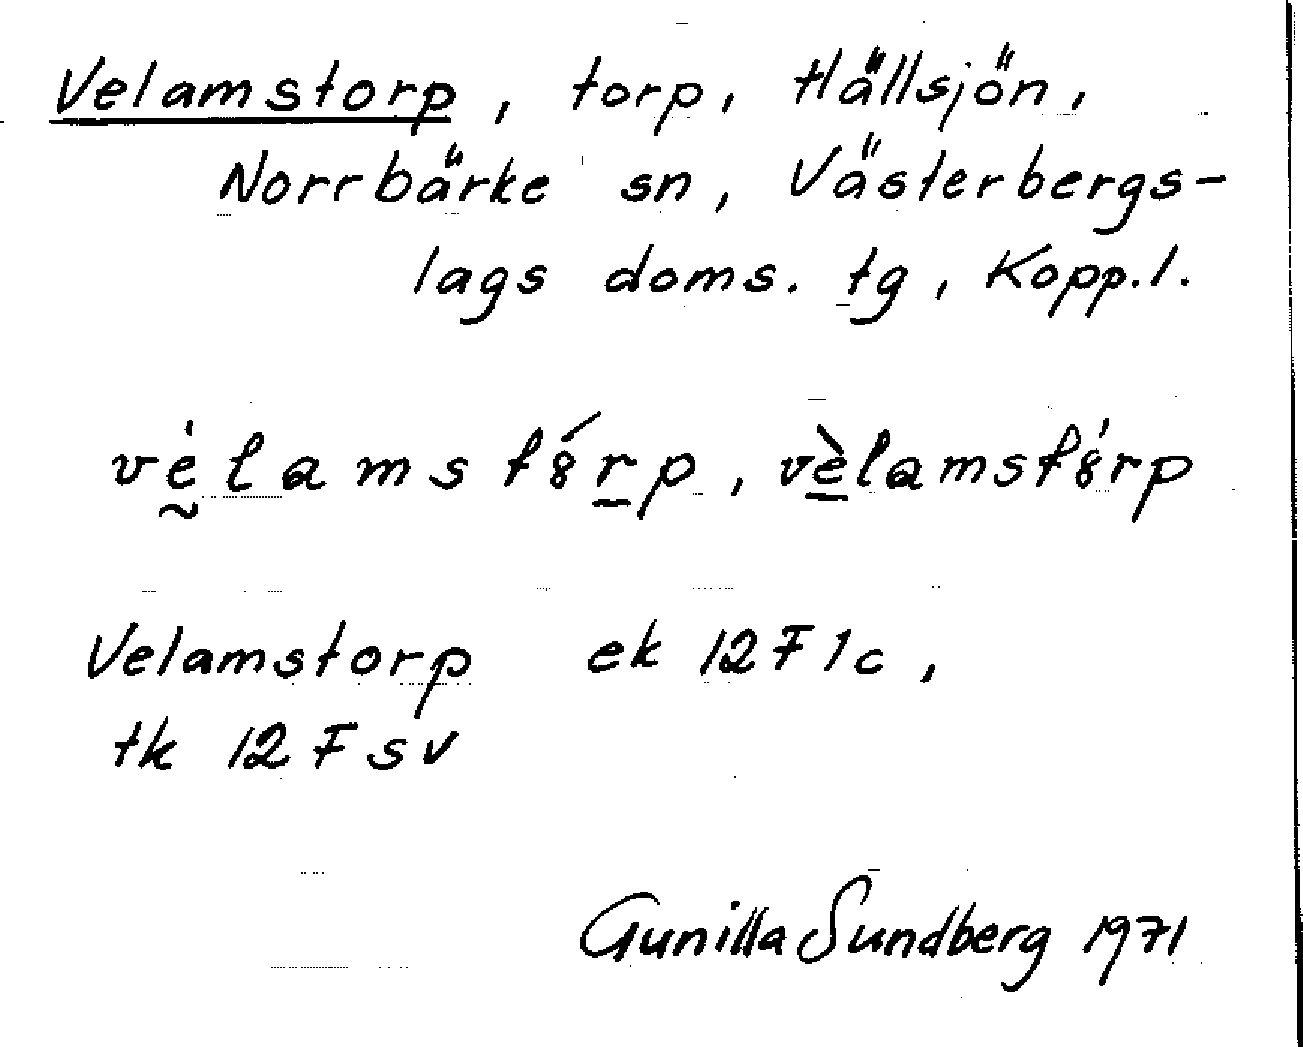 Velamstorp, torp, Hällsjön,
Norrbärke sn, Västerbergs-
lags doms. tg, Kopp.l.
vḛ́lamst8́r̲p, vè̲lamst8́rp
Velamstorp ek 12F1c,
tk 12F sv
Gunilla Sundberg 1971